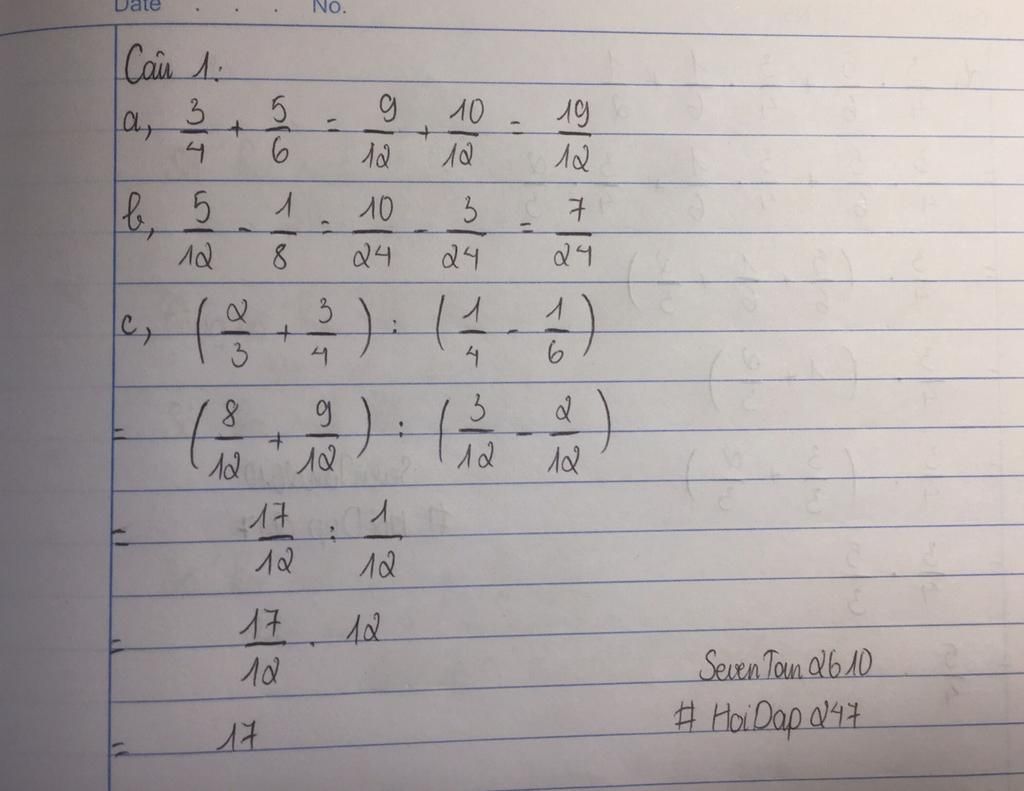 Date . . . No.
Câu 1:
a, 3/4 + 5/6 = 9/12 + 10/12 = 19/12
b, 5/12 - 1/8 = 10/24 - 3/24 = 7/24
c, (2/3 + 3/4) : (1/4 - 1/6)
= (8/12 + 9/12) : (3/12 - 2/12)
= 17/12 : 1/12
= 17/12 . 12
= 17
SevenTan2610
# HoiDap247